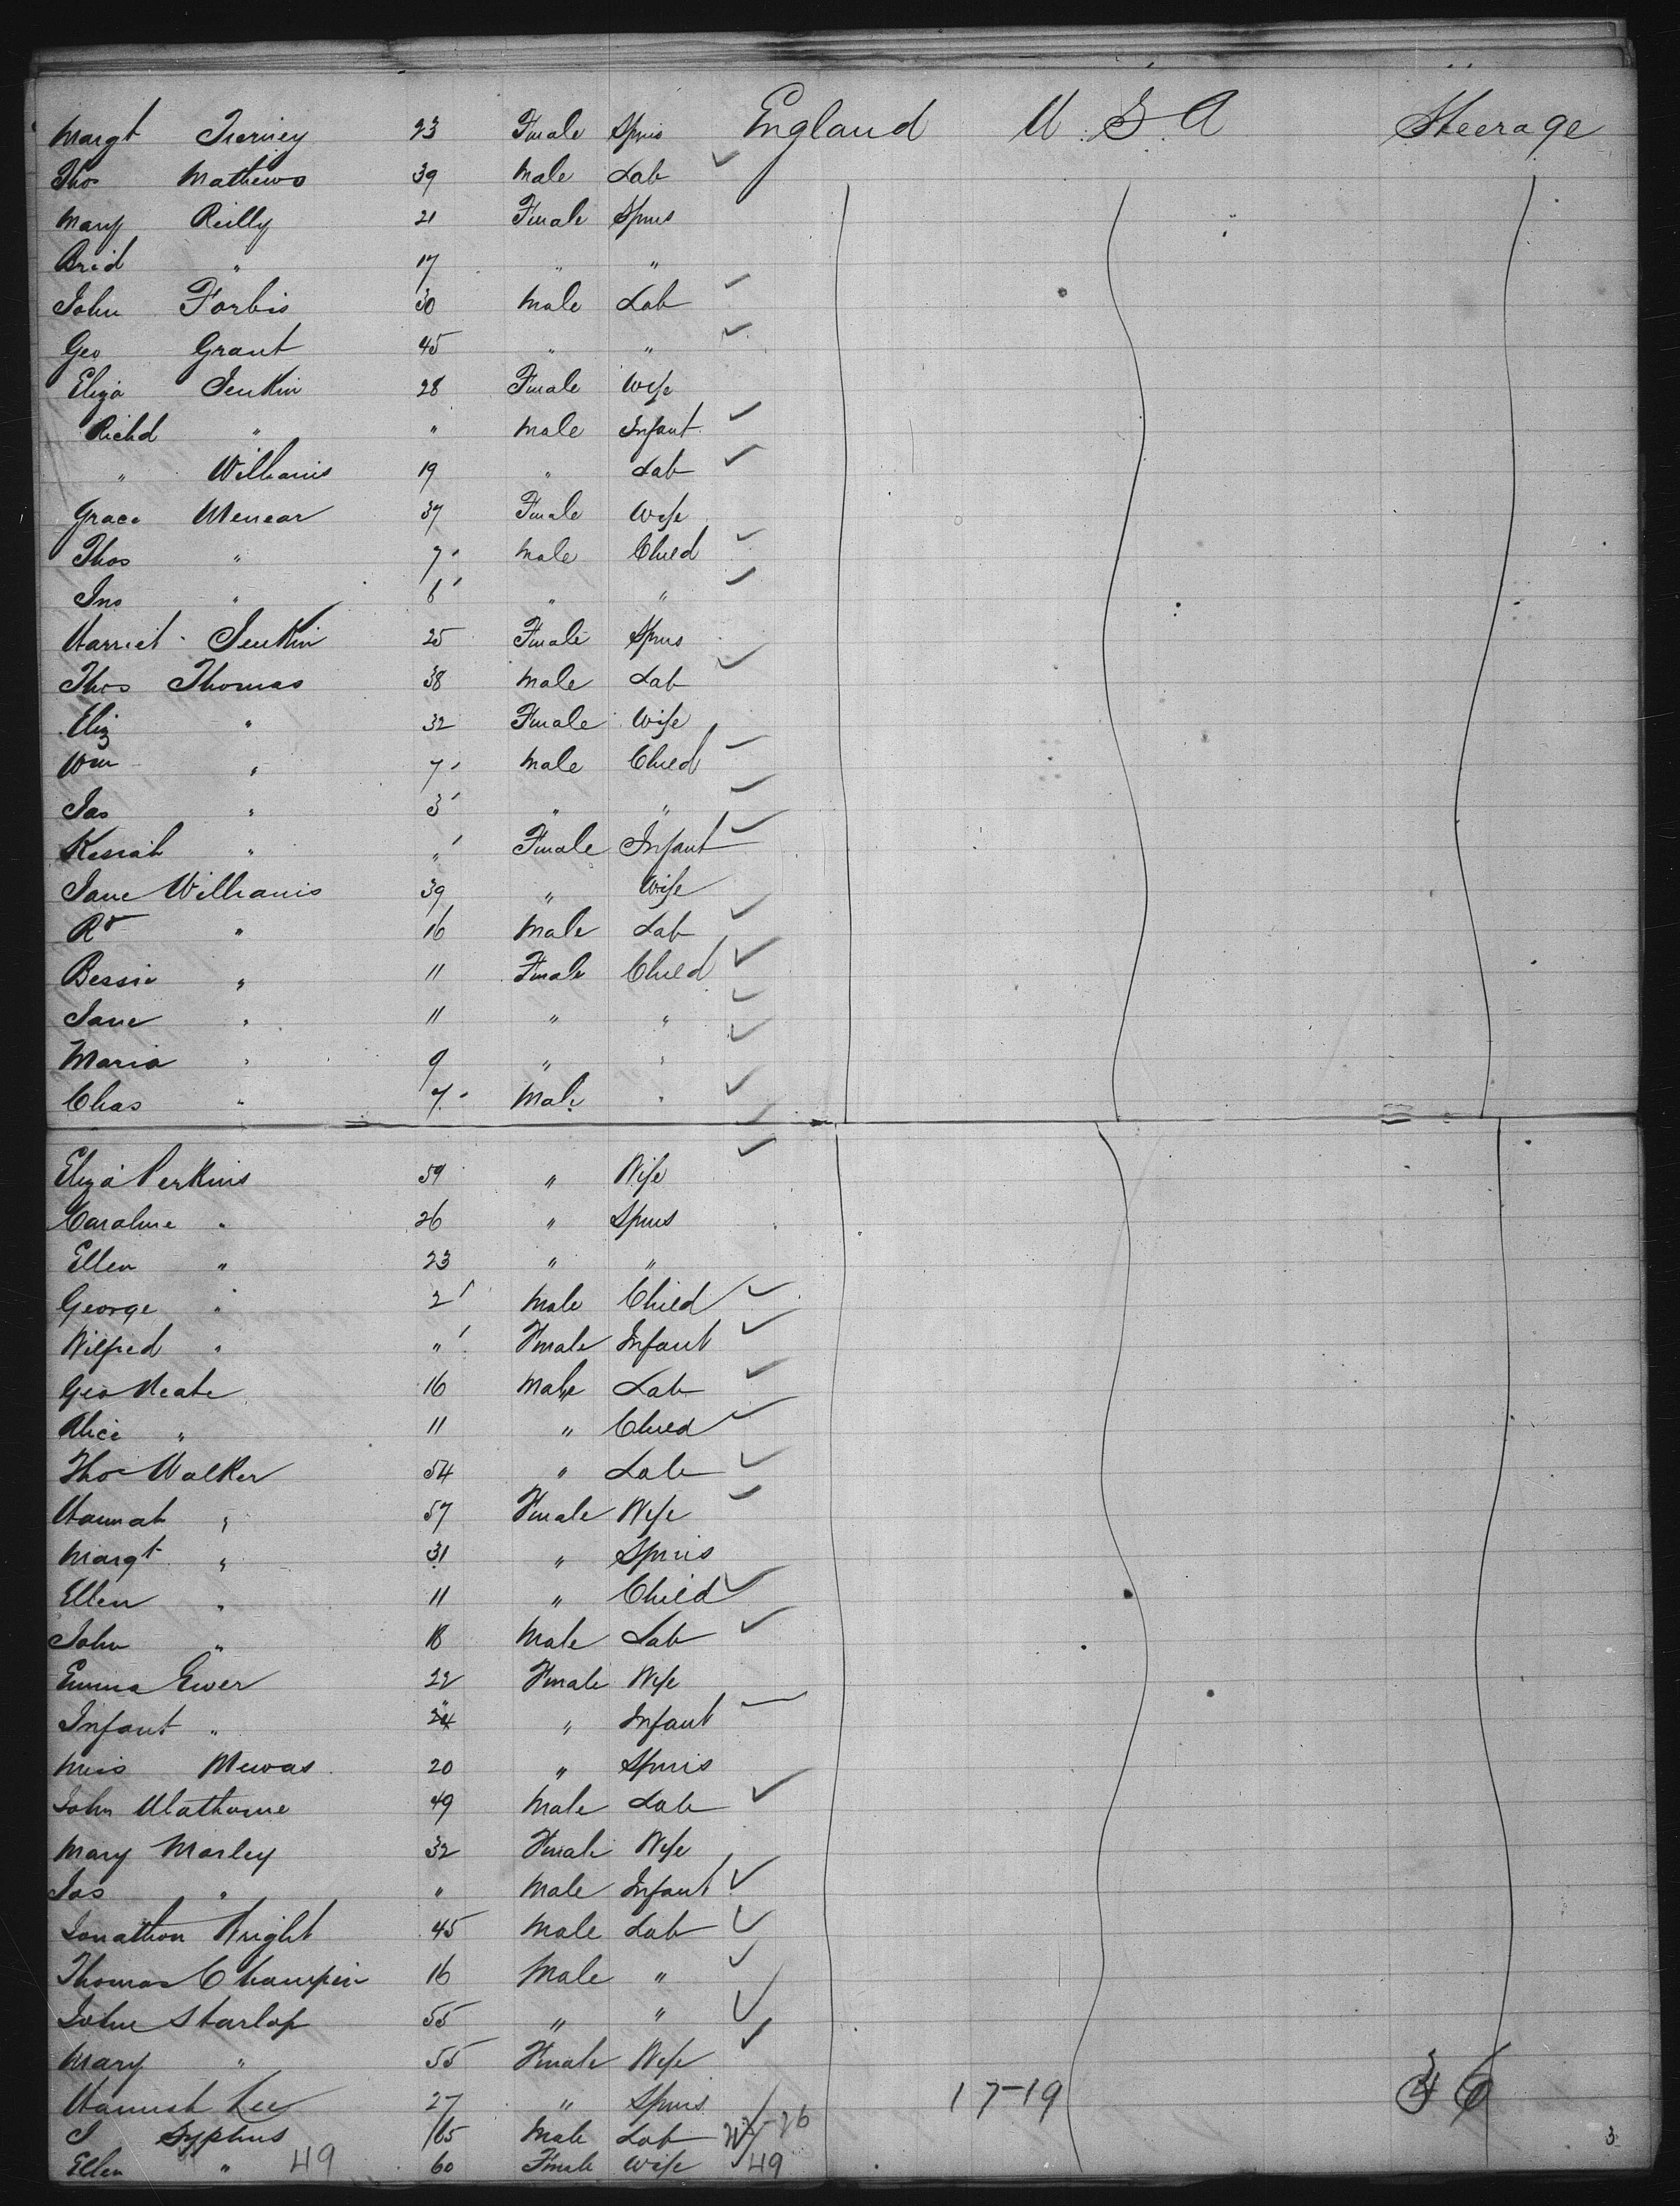 Margt Tierney 23 Female Spins England U S A Steerage
Thos Mathews 39 Male Lab
Mary Reilly 21 Female Spins
Brid " 17 " "
John Forbis 30 Male Lab
Geo Grant 45 " "
Eliza Jenkin 28 Female Wife
Richd " " Male Infant
" Williams 19 " Lab
Grace Menear 37 Female Wife
Thos " 7 Male Child
Jno " 6 " "
Harriet Jenkin 25 Female Spins
Thos Thomas 38 Male Lab
Eliz " 32 Female Wife
Wm " 7 Male Child
Jas " 3 " "
Kesiah " " Female Infant
Jane Williams 39 " Wife
Rd " 16 Male Lab
Bessie " 11 Female Child
Jane " 11 " "
Maria " 9 " "
Chas " 7 Male "
Eliza Perkins 59 " Wife
Caroline " 26 " Spins
Ellen " 23 " "
George " 2 Male Child
Wilfred " " Female Infant
Geo Neate 16 Male Lab
Alice " 11 " Child
Thos Walker 54 " Lab
Hannah " 57 Female Wife
Margt " 31 " Spins
Ellen " 11 " Child
John " 18 Male Lab
Emma Ewer 22 Female Wife
Infant " " " Infant
Miss 20 " Spins
John 49 Male Lab
Mary Morley 32 Female Wife
Jas " " Male Infant
Jonathon Wright 45 Male Lab
Thomas Champin 16 Male "
John Starlop 55 " "
Mary " 55 Female Wife
Hannah Lee 27 " Spins 17-19
J Syphus 65 Male Lab
Ellen " 49 60 Female Wife 49
3